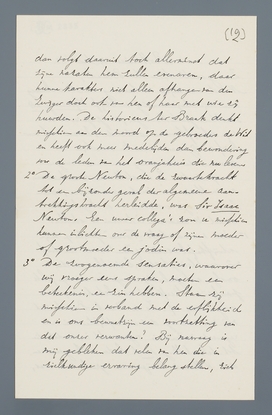 (12)
dan volgt daaruit toch allerminst dat
zijn karakter hem zullen ervaren, daar
hunne karakters niet alleen afhangen van den
doch ook van hen of haar met wie zij
huwden. De historicus ter Braak denkt
misschien aan den moord op de gebroeders de Witt
en heeft ook meer medelijden dan bewondering
voor de leden van het Oranjehuis die nu leven
2° De groote Newton, die de zwaartekracht
tot een bijzonder geval der algemeene aan-
trekkingskracht herleidde, was Sir Isaac
Newton. Een uwer collega's zou u misschien
kunnen inlichten over de vraag of zijne moeder
of grootmoeder een jodin was.
3° De zoogenaamde sensaties, waarover
wij vroeger eens spraken, moeten een
beteekenis, en zin hebben. Staan zij
misschien in verband met de erfelijkheid
en is ons bewustzijn een voortzetting van
dat onzer verwanten? Bij navraag is
mij gebleken dat velen van hen die in
zielkundige ervaring belang stellen, zich